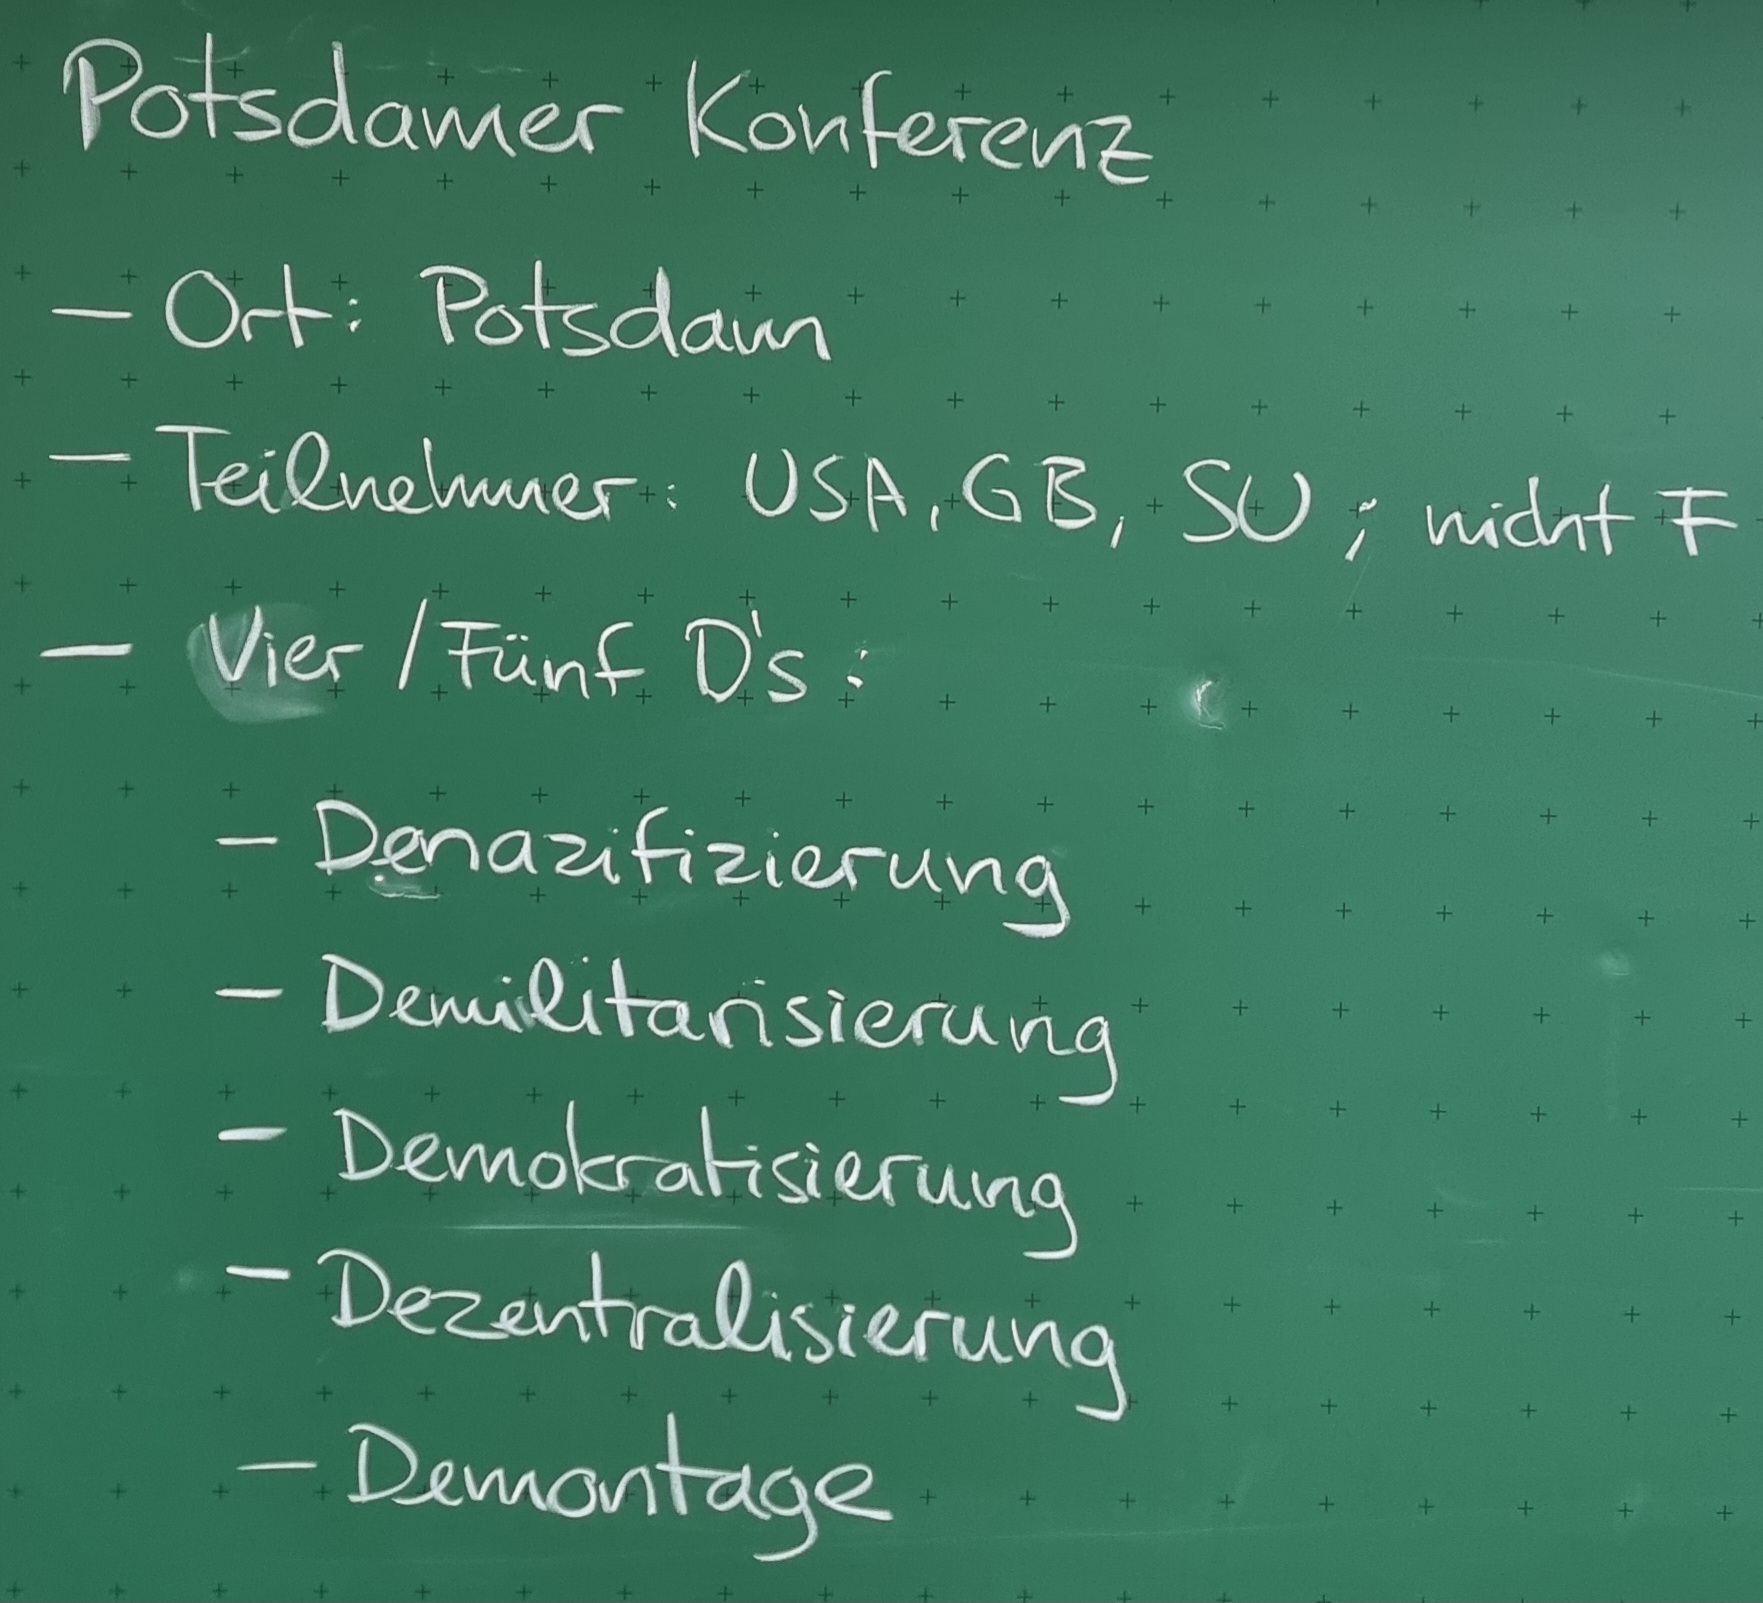 Potsdamer Konferenz
- Ort: Potsdam
- Teilnehmer: USA, GB, SU; nicht F
- Vier / Fünf D's:
- Denazifizierung
- Demilitarisierung
- Demokratisierung
- Dezentralisierung
- Demontage